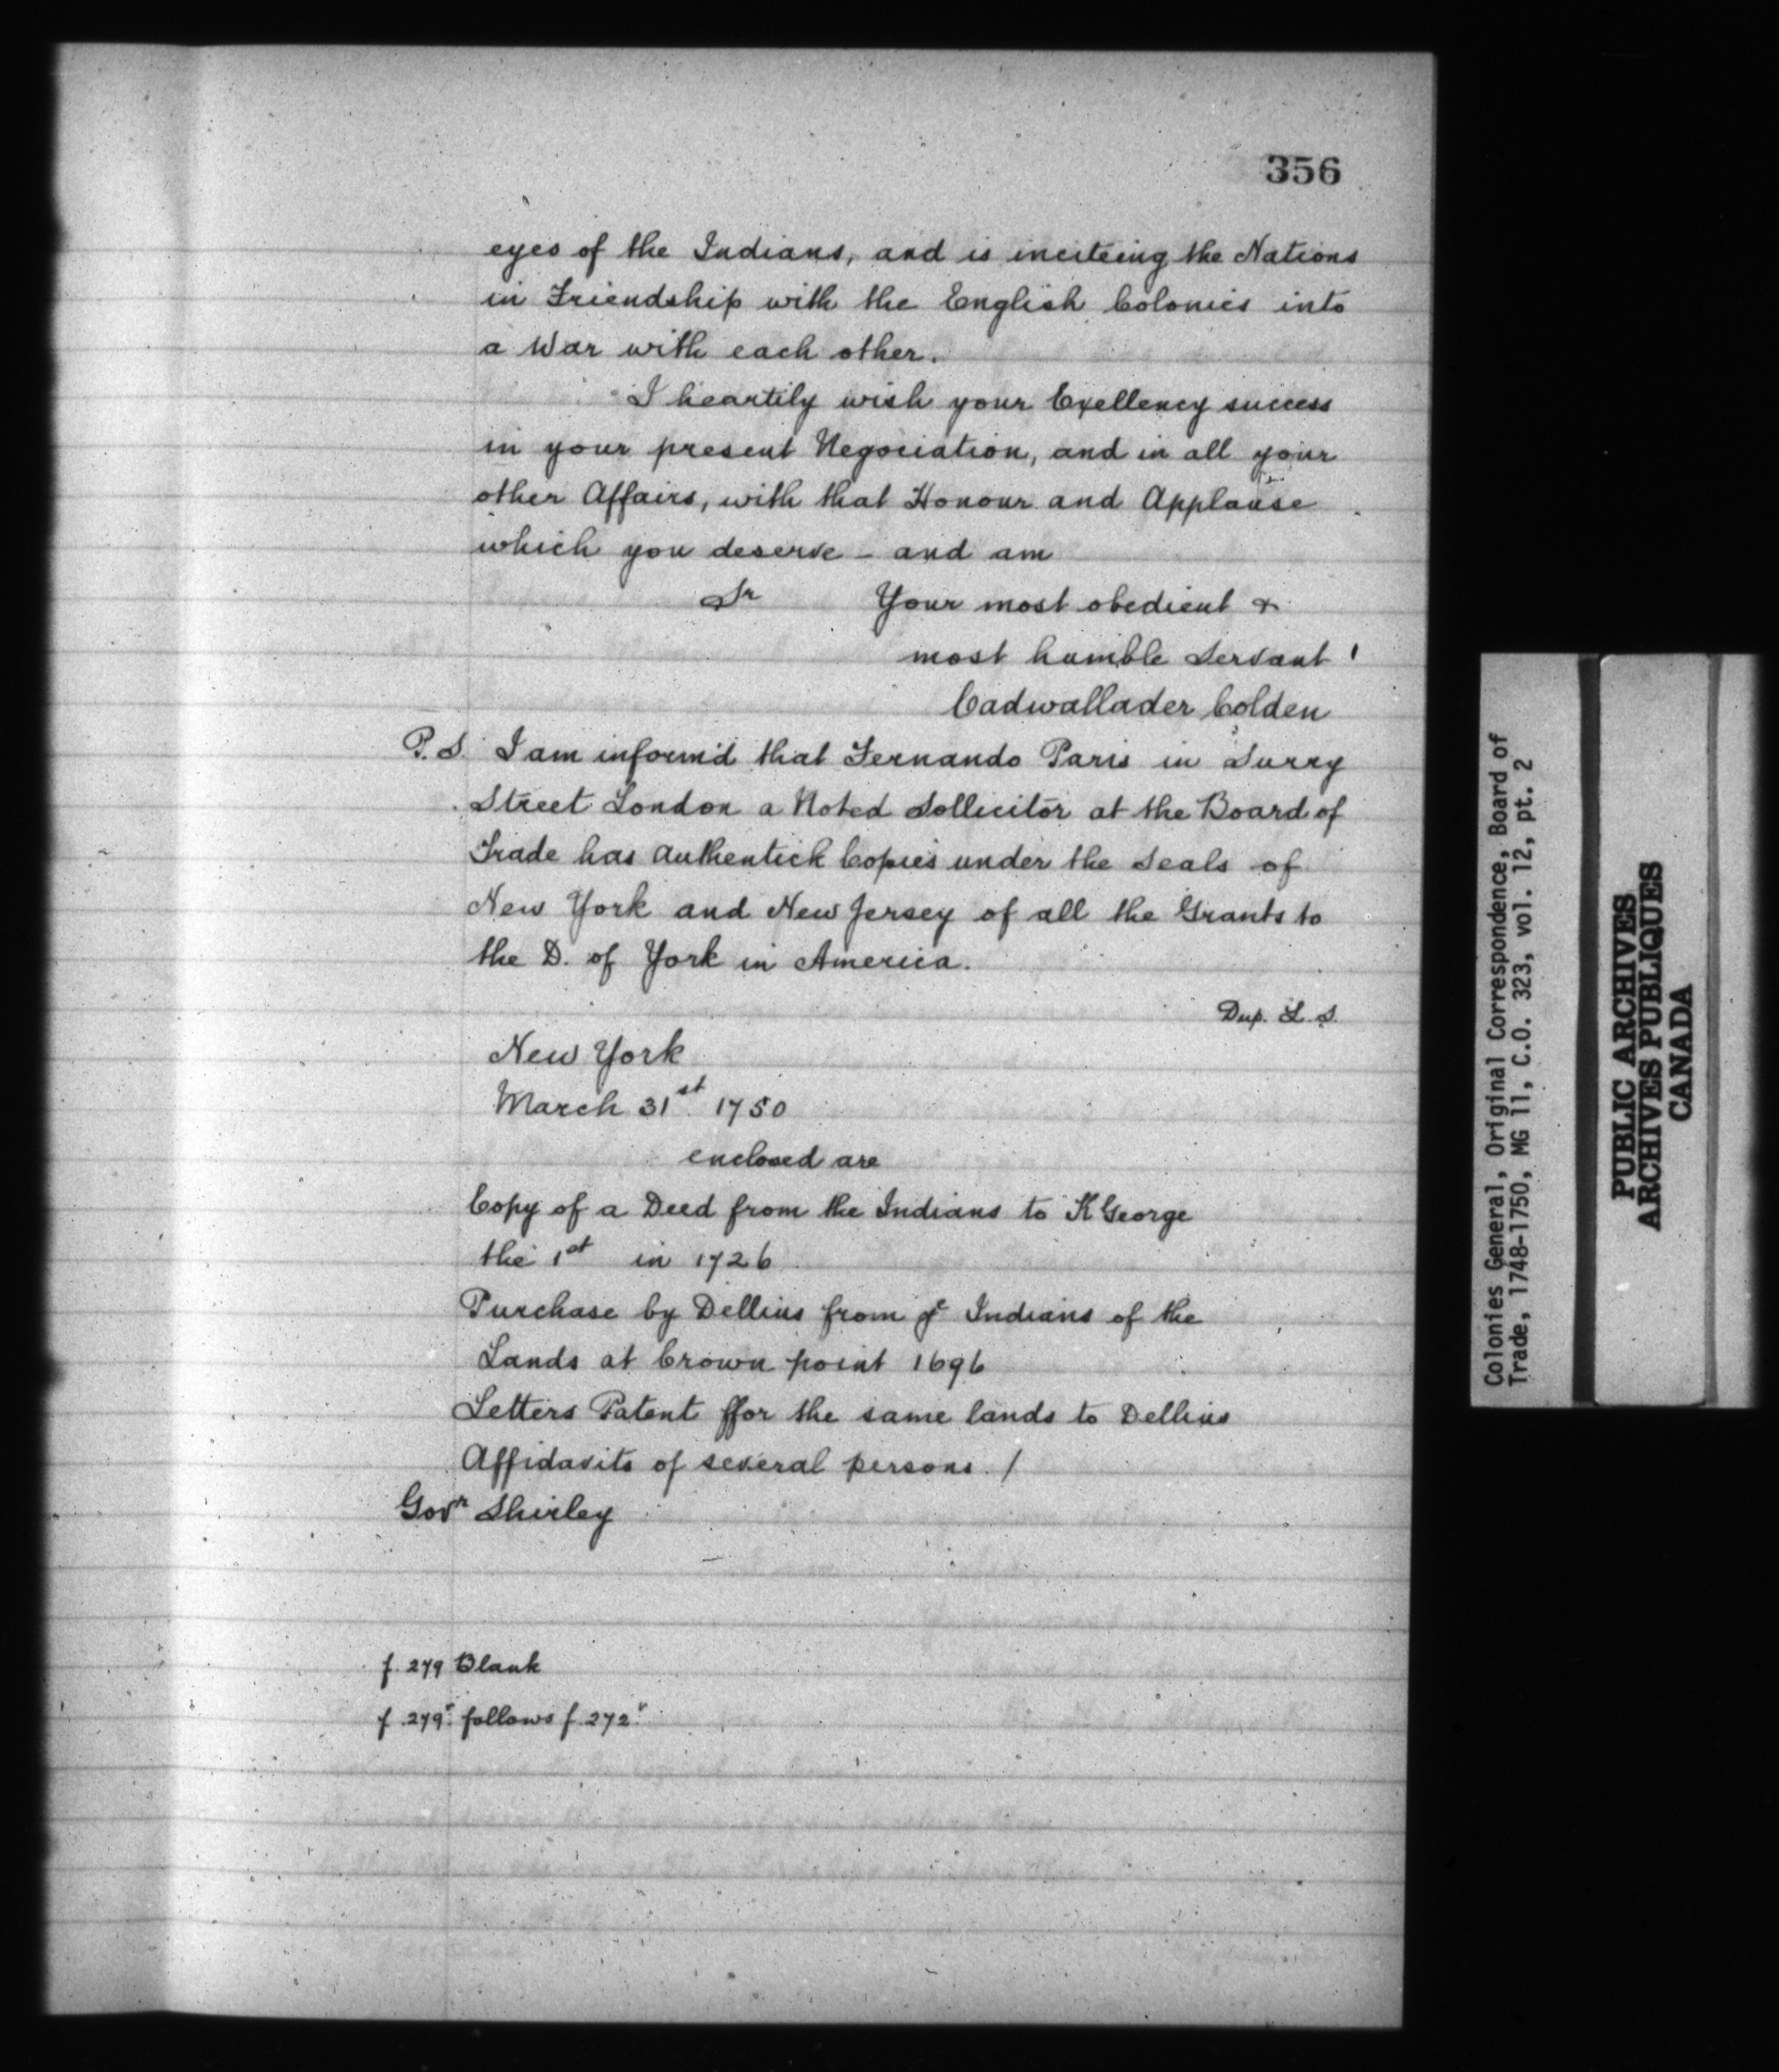 356
eyes of the Indians, and is inciteing the Nations
in Friendship with the English Colonies into
a War with each other.
I heartily wish your Exellency success
in your present Negociation, and in all your
other Affairs, with that Honour and Applause
which you deserve – and am
Sr Your most obedient &
most humble Servant
Cadwallader Colden
P.S. I am inform'd that Fernando Paris in Surry
Street London a Noted Sollicitor at the Board of
Trade has Authentick Copies under the Seals of
New York and New Jersey of all the Grants to
the D. of York in America.
Dup. L.S.
New York
March 31st 1750
enclosed are
Copy of a Deed from the Indians to K George
the 1st in 1726
Purchase by Dellius from ye Indians of the
Lands at Crown point 1696
Letters Patent ffor the same lands to Dellius
Affidavits of several persons /
Govr Shirley
f. 279 Blank
f. 279v follows f. 272v
Colonies General, Original Correspondence, Board of
Trade, 1748-1750, MG 11, C.O. 323, vol. 12, pt. 2
PUBLIC ARCHIVES
ARCHIVES PUBLIQUES
CANADA